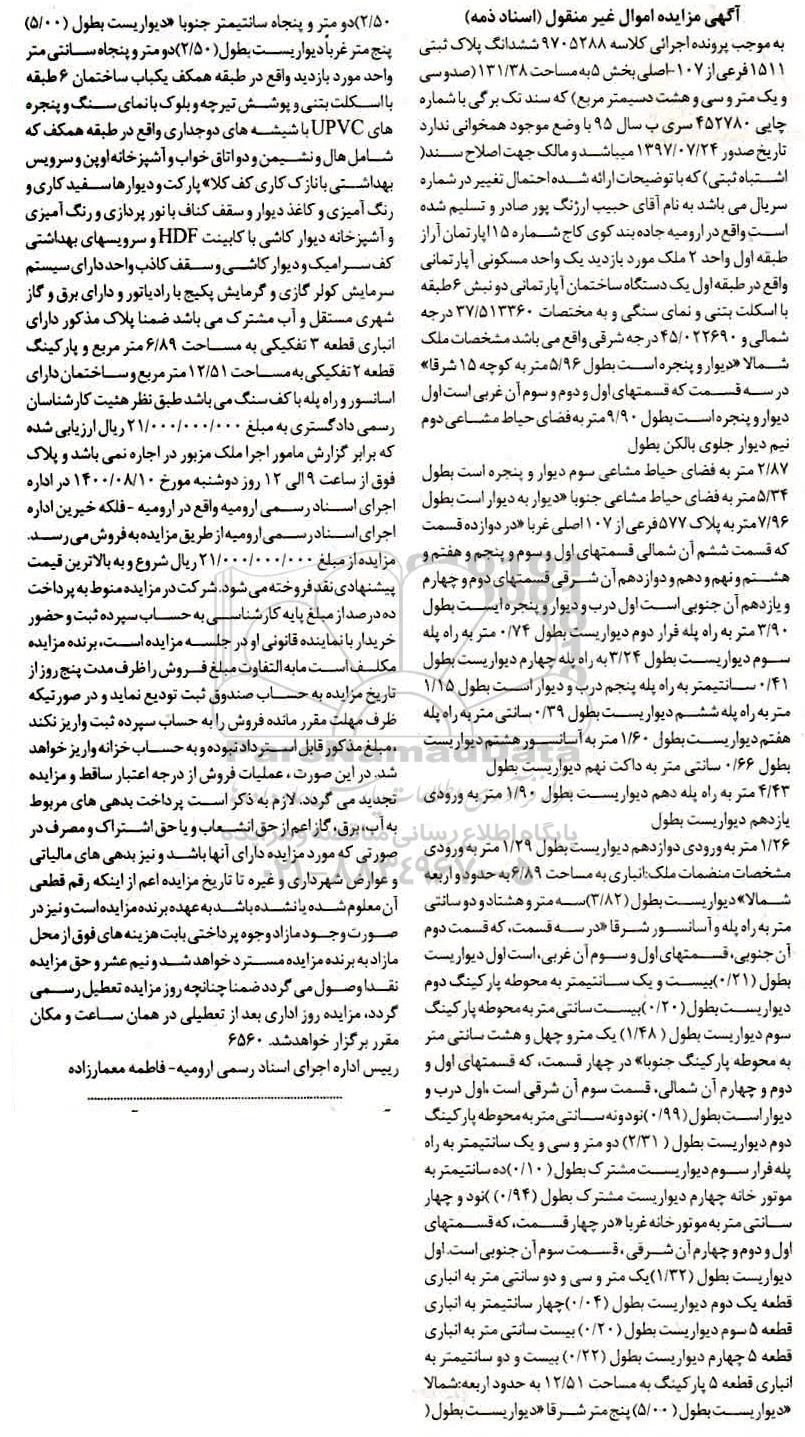 آگهی مزایده اموال غیر منقول (اسناد ذمه)
به موجب پرونده اجرائی کلاسه ۹۷۰۵۲۸۸ ششدانگ پلاک ثبتی
۱۵۱۱فرعی از ۱۰۷-اصلی بخش ۵ به مساحت ۱۳۱/۳۸ (صدو سی
و یک متر و سی و هشت دسیمتر مربع) که سند تک برگی با شماره
چاپی ۴۵۲۷۸۰ سری ب سال ۹۵ با وضع موجود همخوانی ندارد
تاریخ صدور ۱۳۹۷/۰۷/۲۴ میباشد و مالک جهت اصلاح سند(
اشتباه ثبتی) که با توضیحات ارائه شده احتمال تغییر در شماره
سریال می باشد به نام آقای حبیب ارژنگ پور صادر و تسلیم شده
است واقع در ارومیه جاده بند کوی کاج شماره ۱۵اپارتمان آراز
طبقه اول واحد ۲ ملک مورد بازدید یک واحد مسکونی آپارتمانی
واقع در طبقه اول یک دستگاه ساختمان آپارتمانی دو نبش ۶طبقه
با اسکلت بتنی و نمای سنگی و به مختصات ۳۷/۵۱۳۳۶۰ درجه
شمالی و ۴۵/۰۲۲۶۹۰ درجه شرقی واقع می باشد مشخصات ملک
شمالا «دیوار و پنجره است بطول ۵/۹۶متر به کوچه ۱۵ شرقا»
در سه قسمت که قسمتهای اول و دوم و سوم آن غربی است اول
دیوار و پنجره است بطول ۹/۹۰متر به فضای حیاط مشاعی دوم
نیم دیوار جلوی بالکن بطول
۲/۸۷ متر به فضای حیاط مشاعی سوم دیوار و پنجره است بطول
۵/۳۴متر به فضای حیاط مشاعی جنوبا «دیوار به دیوار است بطول
۷/۹۶متر به پلاک ۵۷۷فرعی از ۱۰۷ اصلی غربا «در دوازده قسمت
که قسمت ششم آن شمالی قسمتهای اول و سوم و پنجم و هفتم و
هشتم و نهم و دهم و دوازدهم آن شرقی قسمتهای دوم و چهارم
و یازدهم آن جنوبی است اول درب و دیوار و پنجره ایست بطول
۳/۹۰ متر به راه پله فرار دوم دیواریست بطول ۰/۷۴ متر به راه پله
سوم دیواریست بطول ۳/۲۴ به راه پله چهارم دیواریست بطول
۰/۴۱ سانتیمتر به راه پله پنجم درب و دیوار است بطول ۱/۱۵
متر به راه پله ششم دیواریست بطول ۰/۳۹سانتی متر به راه پله
هفتم دیواریست بطول ۱/۶۰ متر به آسانسور هشتم دیواریست
بطول ۰/۶۶ سانتی متر به داکت نهم دیواریست بطول
۴/۴۳ متر به راه پله دهم دیواریست بطول ۱/۹۰ متر به ورودی
یازدهم دیواریست بطول
۱/۲۶ متر به ورودی دوازدهم دیواریست بطول ۱/۲۹ متر به ورودی
مشخصات منضمات ملک:انباری به مساحت ۶/۸۹ به حدود و اربعه
شمالا» دیواریست بطول (۳/۸۲)سه متر و هشتاد و دو سانتی
متر به راه پله و آسانسور شرقا «در سه قسمت، که قسمت دوم
آن جنوبی، قسمتهای اول و سوم آن غربی، است اول دیواریست
بطول (۰/۲۱)بیست و یک سانتیمتر به محوطه پارکینگ دوم
دیواریست بطول (۰/۲۰)بیست سانتی متر به محوطه پارکینگ
سوم دیواریست بطول (۱/۴۸) یک مترو چهل و هشت سانتی متر
به محوطه پارکینگ جنوبا» در چهار قسمت، که قسمتهای اول و
دوم و چهارم آن شمالی، قسمت سوم آن شرقی است ،اول درب و
دیوار است بطول (۰/۹۹)نود ونه سانتی متر به محوطه پارکینگ
دوم دیواریست بطول (۲/۳۱) دو متر و سی و یک سانتیمتر به راه
پله فرار سوم دیواریست مشترک بطول (۰/۱۰)ده سانتیمتر به
موتور خانه چهارم دیواریست مشترک بطول (۰/۹۴) )نود و چهار
سانتی متر به موتور خانه غربا «در چهار قسمت، که قسمتهای
اول و دوم و چهارم آن شرقی ، قسمت سوم آن جنوبی است. اول
دیواریست بطول (۱/۳۲)یک متر و سی و دو سانتی متر به انباری
قطعه یک دوم دیواریست بطول (۰/۰۴)چهار سانتیمتر به انباری
قطعه ۵ سوم دیواریست بطول (۰/۲۰) بیست سانتی متر به انباری
قطعه ۵ چهارم دیواریست بطول (۰/۲۲) بیست و دو سانتیمتر به
انباری قطعه ۵ پارکینگ به مساحت ۱۲/۵۱ به حدود اربعه:شمالا
«دیواریست بطول (۵/۰۰) پنج متر شرقا «دیواریست بطول (
۲/۵۰)دو متر و پنجاه سانتیمتر جنوبا «دیواریست بطول (۵/۰۰)
پنج متر غرباً دیواریست بطول (۲/۵۰)دو متر و پنجاه سانتی متر
واحد مورد بازدید واقع در طبقه همکف یکباب ساختمان ۶طبقه
با اسکلت بتنی و پوشش تیرچه و بلوک با نمای سنگ و پنجره
های UPVC با شیشه های دوجداری واقع در طبقه همکف که
شامل هال و نشیمن و دو اتاق خواب و آشپزخانه اوپن و سرویس
بهداشتی با نازک کاری کف کلا» پارکت و دیوارها سفید کاری و
رنگ آمیزی و کاغذ دیوار و سقف کناف با نور پردازی و رنگ آمیزی
و آشپزخانه دیوار کاشی با کابینت HDF و سرویسهای بهداشتی
کف سرامیک و دیوار کاشی و سقف کاذب واحد دارای سیستم
سرمایش کولر گازی و گرمایش پکیج با رادیاتور و دارای برق و گاز
شهری مستقل و آب مشترک می باشد ضمنا پلاک مذکور دارای
انباری قطعه ۳ تفکیکی به مساحت ۶/۸۹ متر مربع و پارکینگ
قطعه ۲ تفکیکی به مساحت ۱۲/۵۱ متر مربع و ساختمان دارای
اسانسور و راه پله با کف سنگ می باشد طبق نظر هئیت کارشناسان
رسمی دادگستری به مبلغ ۲۱/۰۰۰/۰۰۰/۰۰۰ ریال ارزیابی شده
که برابر گزارش مامور اجرا ملک مزبور در اجاره نمی باشد و پلاک
فوق از ساعت ۹ الی ۱۲ روز دوشنبه مورخ ۱۴۰۰/۰۸/۱۰ در اداره
اجرای اسناد رسمی ارومیه واقع در ارومیه -فلکه خیرین اداره
اجرای اسناد رسمی ارومیه از طریق مزایده به فروش می رسد.
مزایده از مبلغ ۲۱/۰۰۰/۰۰۰/۰۰۰ ریال شروع و به بالاترین قیمت
پیشنهادی نقد فروخته می شود. شرکت در مزایده منوط به پرداخت
ده درصد از مبلغ پایه کارشناسی به حساب سپرده ثبت و حضور
خریدار یا نماینده قانونی او در جلسه مزایده است، برنده مزایده
مکلف است مابه التفاوت مبلغ فروش را ظرف مدت پنج روز از
تاریخ مزایده به حساب صندوق ثبت تودیع نماید و در صورتیکه
ظرف مهلت مقرر مانده فروش را به حساب سپرده ثبت واریز نکند
،مبلغ مذکور قابل استرداد نبوده و به حساب خزانه واریز خواهد
شد. در این صورت ، عملیات فروش از درجه اعتبار ساقط و مزایده
تجدید می گردد. لازم به ذکر است پرداخت بدهی های مربوط
به آب، برق، گاز اعم از حق انشعاب و یا حق اشتراک و مصرف در
صورتی که مورد مزایده دارای آنها باشد و نیز بدهی های مالیاتی
و عوارض شهرداری و غیره تا تاریخ مزایده اعم از اینکه رقم قطعی
آن معلوم شده یا نشده باشد به عهده برنده مزایده است و نیز در
صورت وجود مازاد وجوه پرداختی بابت هزینه های فوق از محل
مازاد به برنده مزایده مسترد خواهد شد و نیم عشر و حق مزایده
نقدا وصول می گردد ضمنا چنانچه روز مزایده تعطیل رسمی
گردد، مزایده روز اداری بعد از تعطیلی در همان ساعت و مکان
مقرر برگزار خواهدشد. ۶۵۶۰
رییس اداره اجرای اسناد رسمی ارومیه- فاطمه معمارزاده
ParsNamadData
پایگاه اطلاع رسانی مناقصه و مزایده
۰۲۱-۸۸۳۴۹۶۷۰-۵